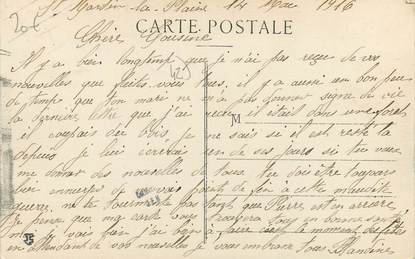 St Martin-la-Plaine 14 Mai 1916
20f
CARTE POSTALE
Chère Cousine
(42)
Il y a bien longtemps que je n'ai pas reçue de vos
nouvelles que faites vous tous, il y a aussi un bon peu
de temps que ton mari ne m'a pas donner signe de vie
la dernière lettre que j'ai reçue il était dans une forêt
M
il coupais des bois je ne sais si il est resté la
depuis je lui écrirais un de ses jours si tu veux
me donner des nouvelles de tous. tu dois être toujours
bien ennuyée on ne vois point de fin a cette maudite
guerre, ne te tourmente pas tangt que Pierre est en arrière
je pense que ma carte vous trouvera tous en bonne santé
moi je vais bien j'ai bien a faire c'est le moment de fêtes
en attendant de vos nouvelles je vous embrasse tous Blandine